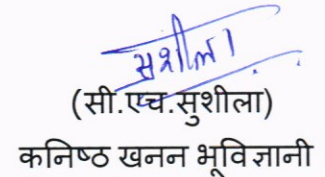 सुशीला
(सी.एच.सुशीला)
कनिष्ठ खनन भूविज्ञानी